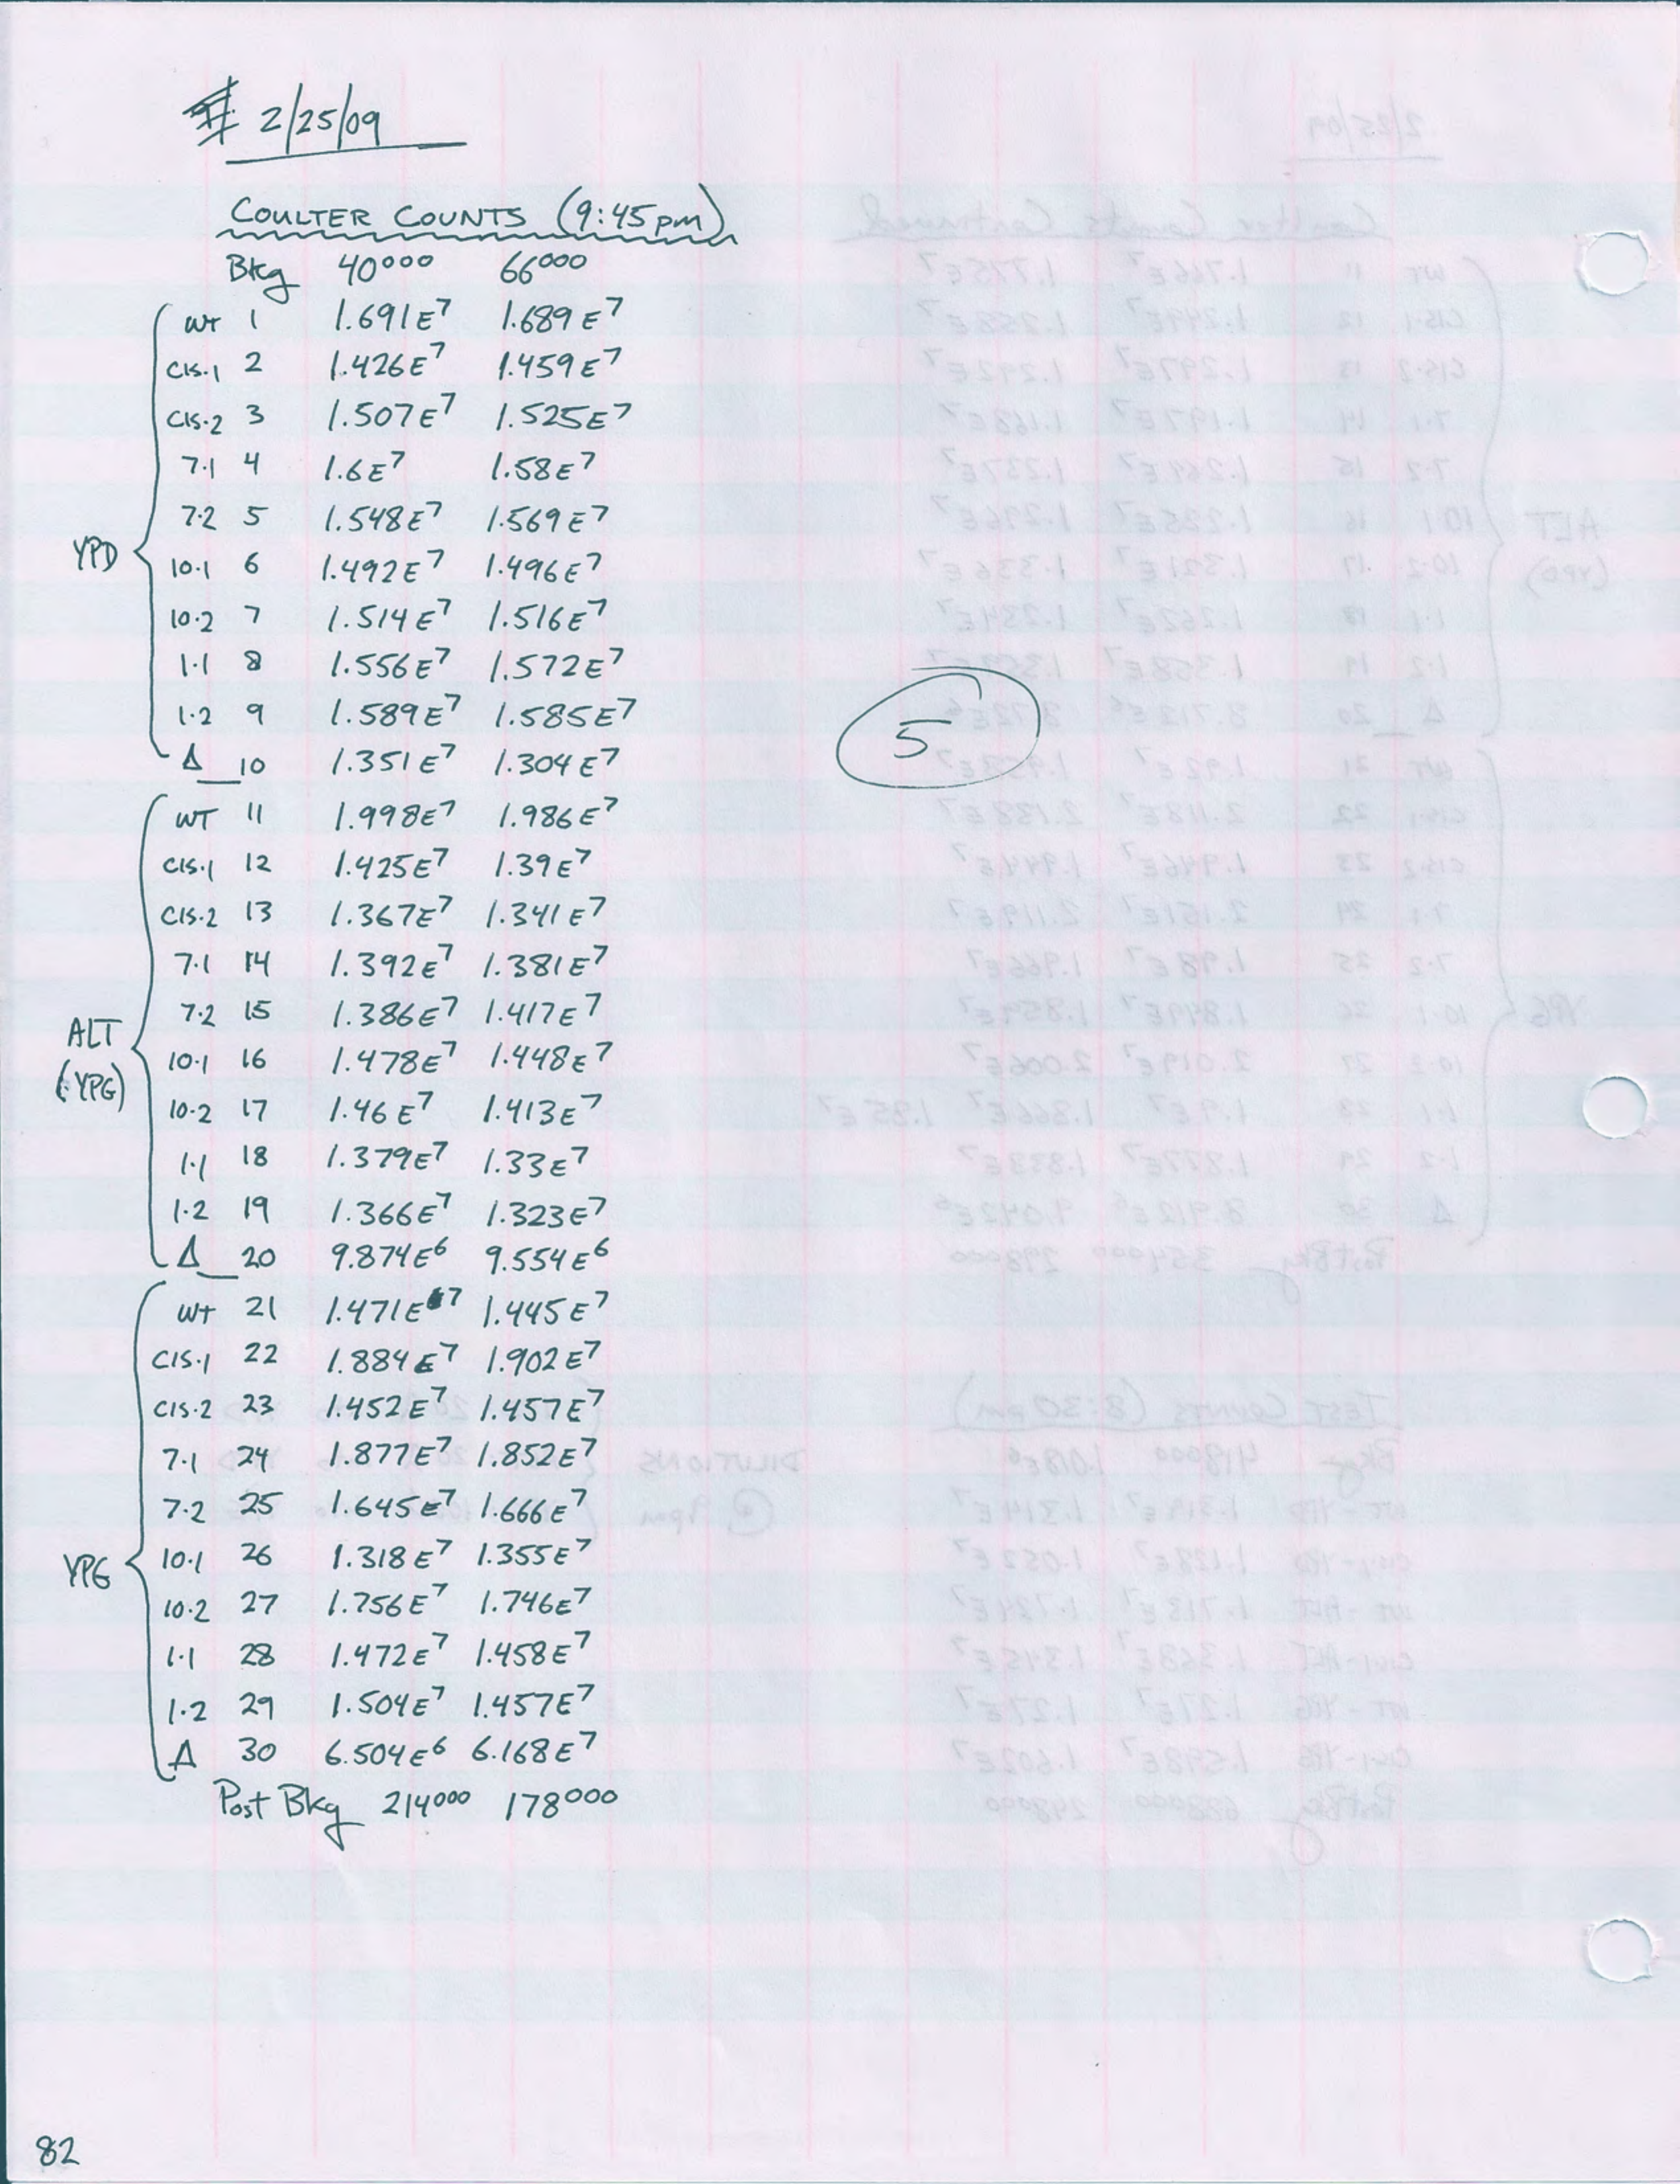 2/25/09
COULTER COUNTS (9:45pm)
Bkg 40000 66000
WT 1 1.691E7 1.689E7
CIS.1 2 1.426E7 1.459E7
CIS.2 3 1.507E7 1.525E7
7.1 4 1.6E7 1.58E7
7.2 5 1.548E7 1.569E7
YPD
10.1 6 1.492E7 1.496E7
10.2 7 1.514E7 1.516E7
1.1 8 1.556E7 1.572E7
1.2 9 1.589E7 1.585E7
5
Δ 10 1.351E7 1.304E7
WT 11 1.998E7 1.986E7
CIS.1 12 1.425E7 1.39E7
CIS.2 13 1.367E7 1.341E7
7.1 14 1.392E7 1.381E7
7.2 15 1.386E7 1.417E7
ALT
(YPG)
10.1 16 1.478E7 1.448E7
10.2 17 1.46E7 1.413E7
1.1 18 1.379E7 1.33E7
1.2 19 1.366E7 1.323E7
Δ 20 9.874E6 9.554E6
WT 21 1.471E7 1.445E7
CIS.1 22 1.884E7 1.902E7
CIS.2 23 1.452E7 1.457E7
7.1 24 1.877E7 1.852E7
7.2 25 1.645E7 1.666E7
YPG
10.1 26 1.318E7 1.355E7
10.2 27 1.756E7 1.746E7
1.1 28 1.472E7 1.458E7
1.2 29 1.504E7 1.457E7
Δ 30 6.504E6 6.168E7
Post Bkg 214000 178000
82